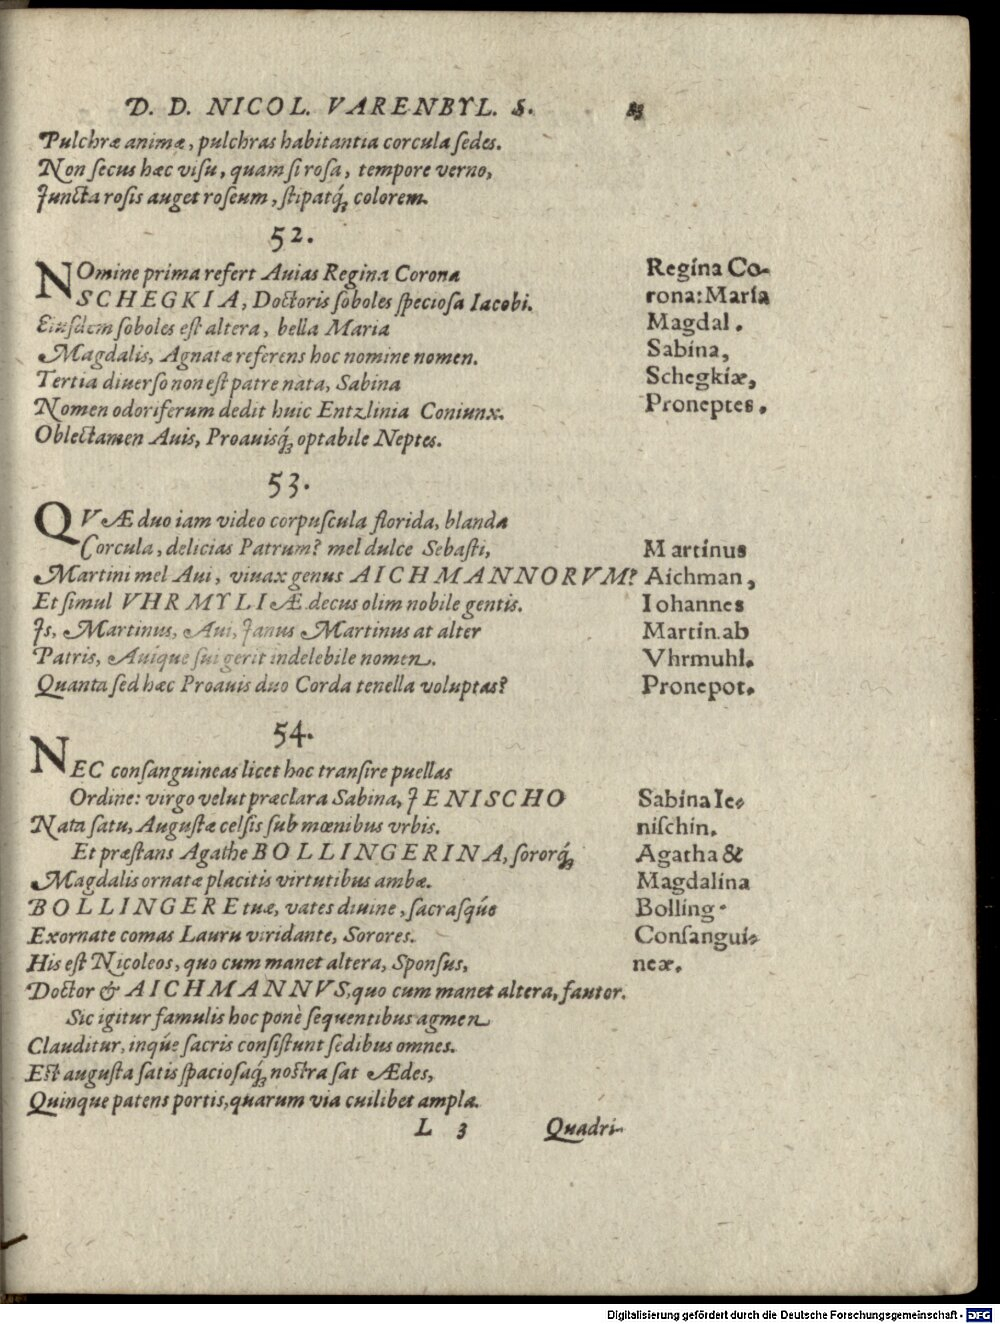 D. D. NICOL. VARENBYL. S.
Pulchræ animæ, pulchras habitantia corcula ſedes.
Non ſecus hæc viſu, quam ſi roſa, tempore verno,
Juncta roſis auget roſeum, ſtipatq́; colorem.
52.
NOmine prima refert Auias Regina Corona
SCHEGKIA, Doctoris ſoboles ſpecioſa Iacobi.
Eiuſdem ſoboles eſt altera, bella Maria
Magdalis, Agnatæ referens hoc nomine nomen.
Tertia diuerſo non eſt patre nata, Sabina
Nomen odoriferum dedit huic Entzlinia Coniunx.
Oblectamen Auis, Proauisq́; optabile Neptes.
Regina Co-
rona: Maria
Magdal.
Sabina,
Schegkiæ,
Proneptes.
53.
QVÆ duo iam video corpuſcula florida, blanda
Corcula, delicias Patrum? mel dulce Sebaſti,
Martini mel Aui, viuax genus AICHMANNORVM?
Et ſimul VHRMYLIÆ decus olim nobile gentis.
Js, Martinus, Aui, Janus Martinus at alter
Patris, Auique ſui gerit indelebile nomen.
Quanta ſed hæc Proauis duo Corda tenella voluptas?
Martinus
Aichman,
Iohannes
Martin. ab
Vhrmuhl.
Pronepot.
54.
NEC conſanguineas licet hoc tranſire puellas
Ordine: virgo velut præclara Sabina, JENISCHO
Nata ſatu, Auguſtæ celſis ſub mœnibus vrbis.
Et præſtans Agathe BOLLINGERINA, ſororq́;
Magdalis ornatæ placitis virtutibus ambæ.
BOLLINGERE tuæ, vates diuine, ſacraſqúe
Exornate comas Lauru viridante, Sorores.
His eſt Nicoleos, quo cum manet altera, Sponſus,
Doctor & AICHMANNVS, quo cum manet altera, fautor.
Sic igitur famulis hoc ponè ſequentibus agmen
Clauditur, inqúe ſacris conſiſtunt ſedibus omnes.
Eſt auguſta ſatis ſpacioſaq́; noſtra ſat Ædes,
Quinque patens portis, quarum via cuilibet ampla.
Sabina Ie-
niſchin.
Agatha &
Magdalina
Bolling.
Conſangui-
neæ.
L 3 Quadri-
Digitalisierung gefördert durch die Deutsche Forschungsgemeinschaft - DFG